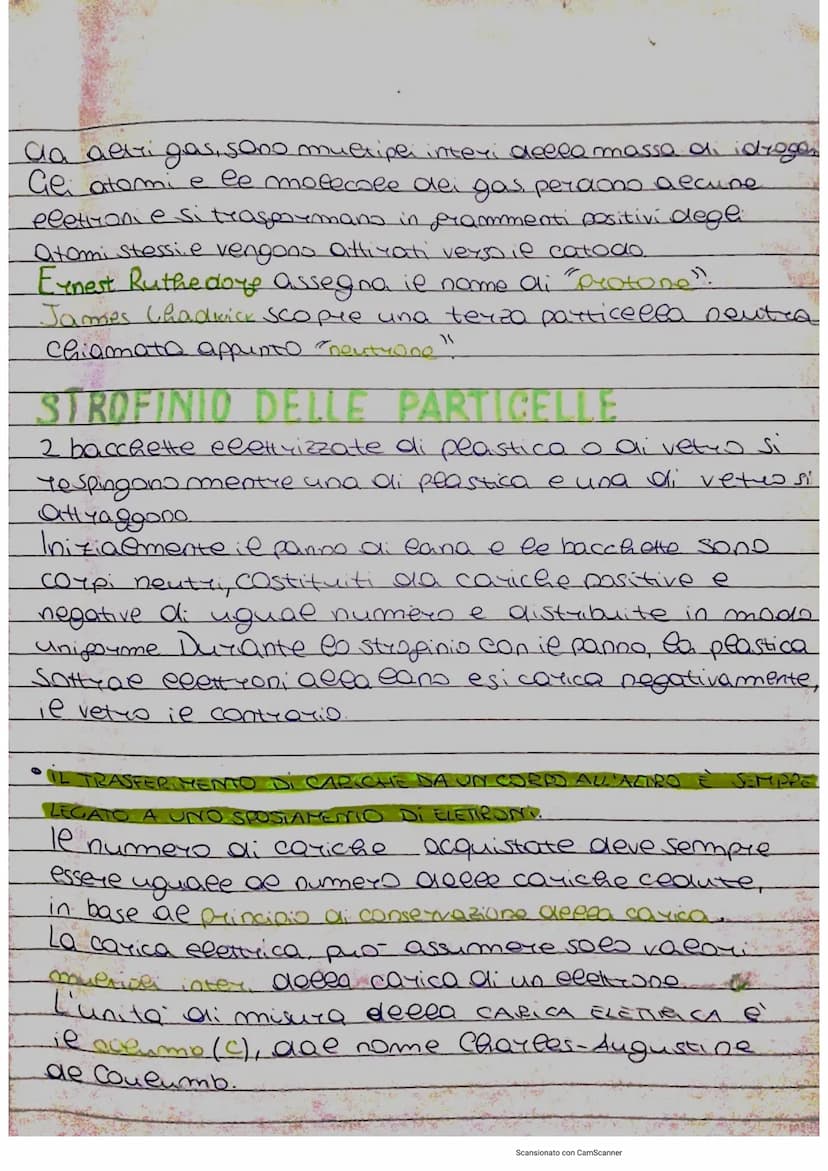 da altri gas, sono multipli interi della massa di idrogen
Gli atomi e le molecole dei gas perdono alcune
elettroni e si trasformano in frammenti positivi degli
atomi stessi e vengono attirati verso il catodo.
Ernest Ruthedorf assegna il nome di "protone".
James Chadwick scopre una terza particella neutra
chiamata appunto "neutrone".
STROFINIO DELLE PARTICELLE
2 bacchette elettrizzate di plastica o di vetro si
respingono mentre una di plastica e una di vetro si
attraggono.
Inizialmente il panno di lana e le bacchette sono
corpi neutri, costituiti da cariche positive e
negative di uguale numero e distribuite in modo
uniforme Durante lo strofinio con il panno, la plastica
sottrae elettroni alla lana e si carica negativamente,
il vetro il contrario.
• IL TRASFERIMENTO DI CARICHE DA UN CORPO ALL'ALTRO È SEMPRE
LEGATO A UNO SPOSTAMENTO DI ELETTRONI.
Il numero di cariche acquistate deve sempre
essere uguale al numero delle cariche cedute,
in base al principio di conservazione della carica.
La carica elettrica può assumere solo valori
multipli interi della carica di un elettrone.
L'unità di misura della CARICA ELETTRICA è
il (C), dal nome Charles-Augustine
de Coulumb.
Scansionato con CamScanner